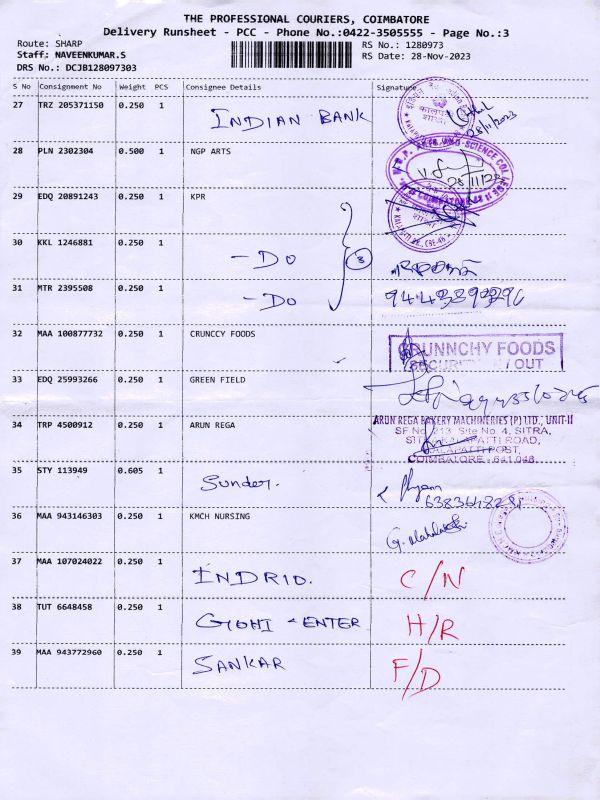 THE PROFESSIONAL COURIERS, COIMBATORE
Delivery Runsheet - PCC - Phone No.:0422-3505555 - Page No.:3
Route: SHARP RS No.: 1280973
Staff: NAVEENKUMAR.S RS Date: 28-Nov-2023
DRS No.: DCJB128097303
S No Consignment No Weight PCS Consignee Details Signature
27 TRZ 205371150 0.250 1 INDIAN BANK 28/11/2023
28 PLN 2302304 0.500 1 NGP ARTS 28/11/23
29 EDQ 20891243 0.250 1 KPR
30 KKL 1246881 0.250 1 - DO 3
31 MTR 2395508 0.250 1 - DO
32 MAA 100877732 0.250 1 CRUNCCY FOODS CRUNNCHY FOODS
SECURITY IN / OUT
33 EDQ 25993266 0.250 1 GREEN FIELD
34 TRP 4500912 0.250 1 ARUN REGA ARUN REGA BAKERY MACHINERIES (P) LTD., UNIT-II
SF No. 213, Site No. 4, SITRA,
KALAPATTI ROAD,
KALAPATTI POST,
COIMBATORE - 641 048.
35 STY 113949 0.605 1 Sunder.
36 MAA 943146303 0.250 1 KMCH NURSING
37 MAA 107024022 0.250 1 INDRID. C/N
38 TUT 6648458 0.250 1 GIOHI - ENTER H/R
39 MAA 943772960 0.250 1 SANKAR F/D